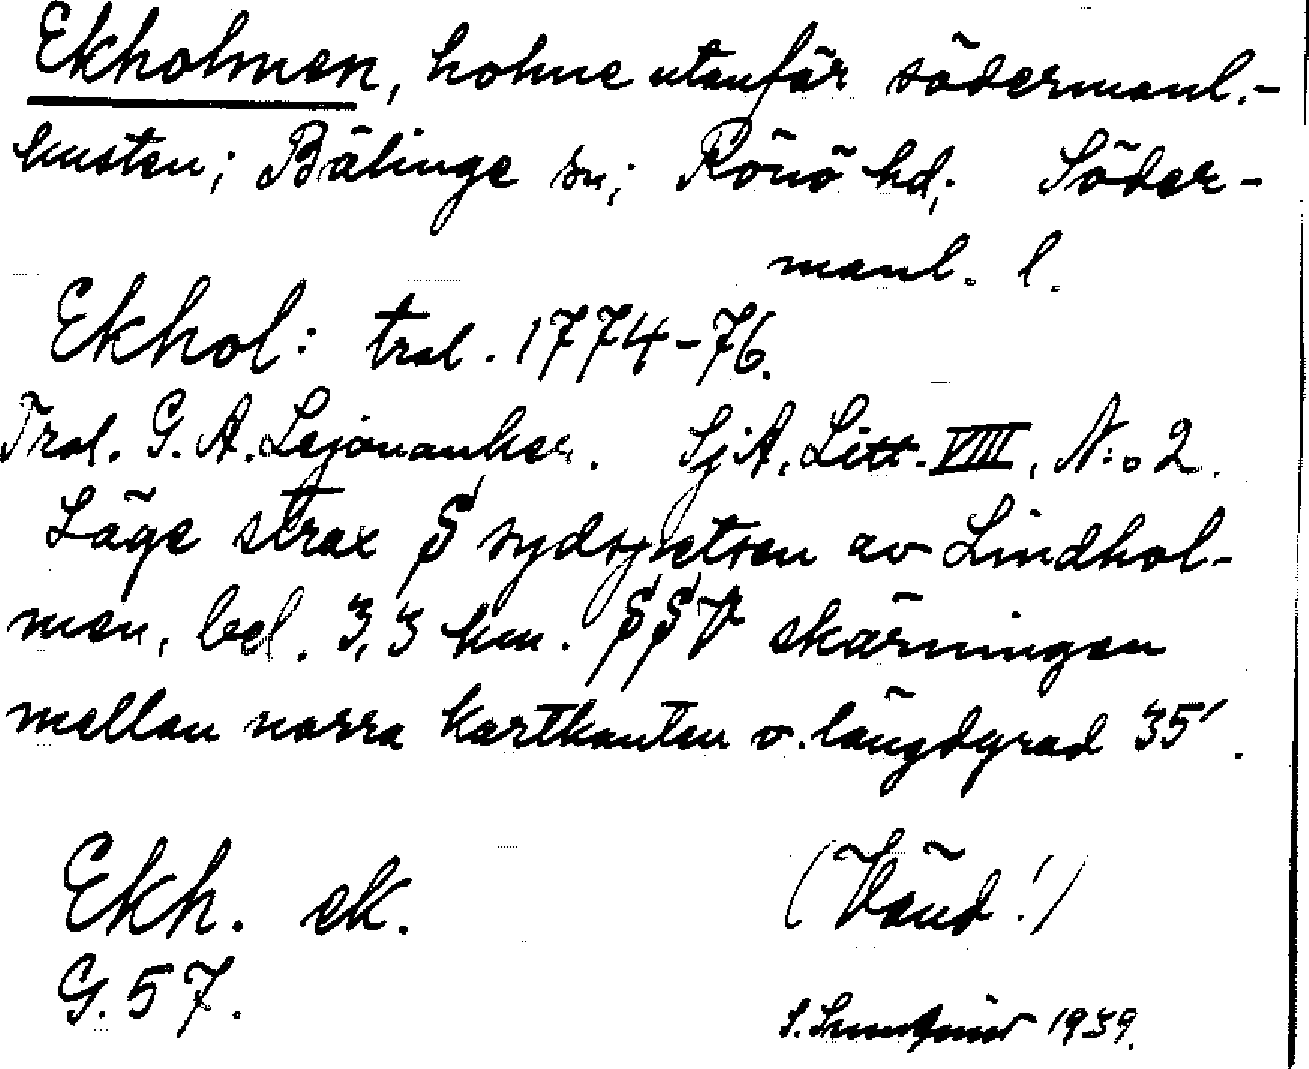 Ekholmen, holme utanför södermanl.-
kusten; Bälinge sn; Rönö hd; Söder-
manl. l.
Ekhol: tral. 1774-76.
Tral. G. A. Lejonanker. SjA. Litt. VIIII, N:o 2.
Läge strax S sydspetsen av Lindhol-
men, bel. 3,3 km. SSV skärningen
mellan norra kartkanten o. längdgrad 35'.
Ekh. ek.
(Vänd!)
G. 57.
S. 1939.